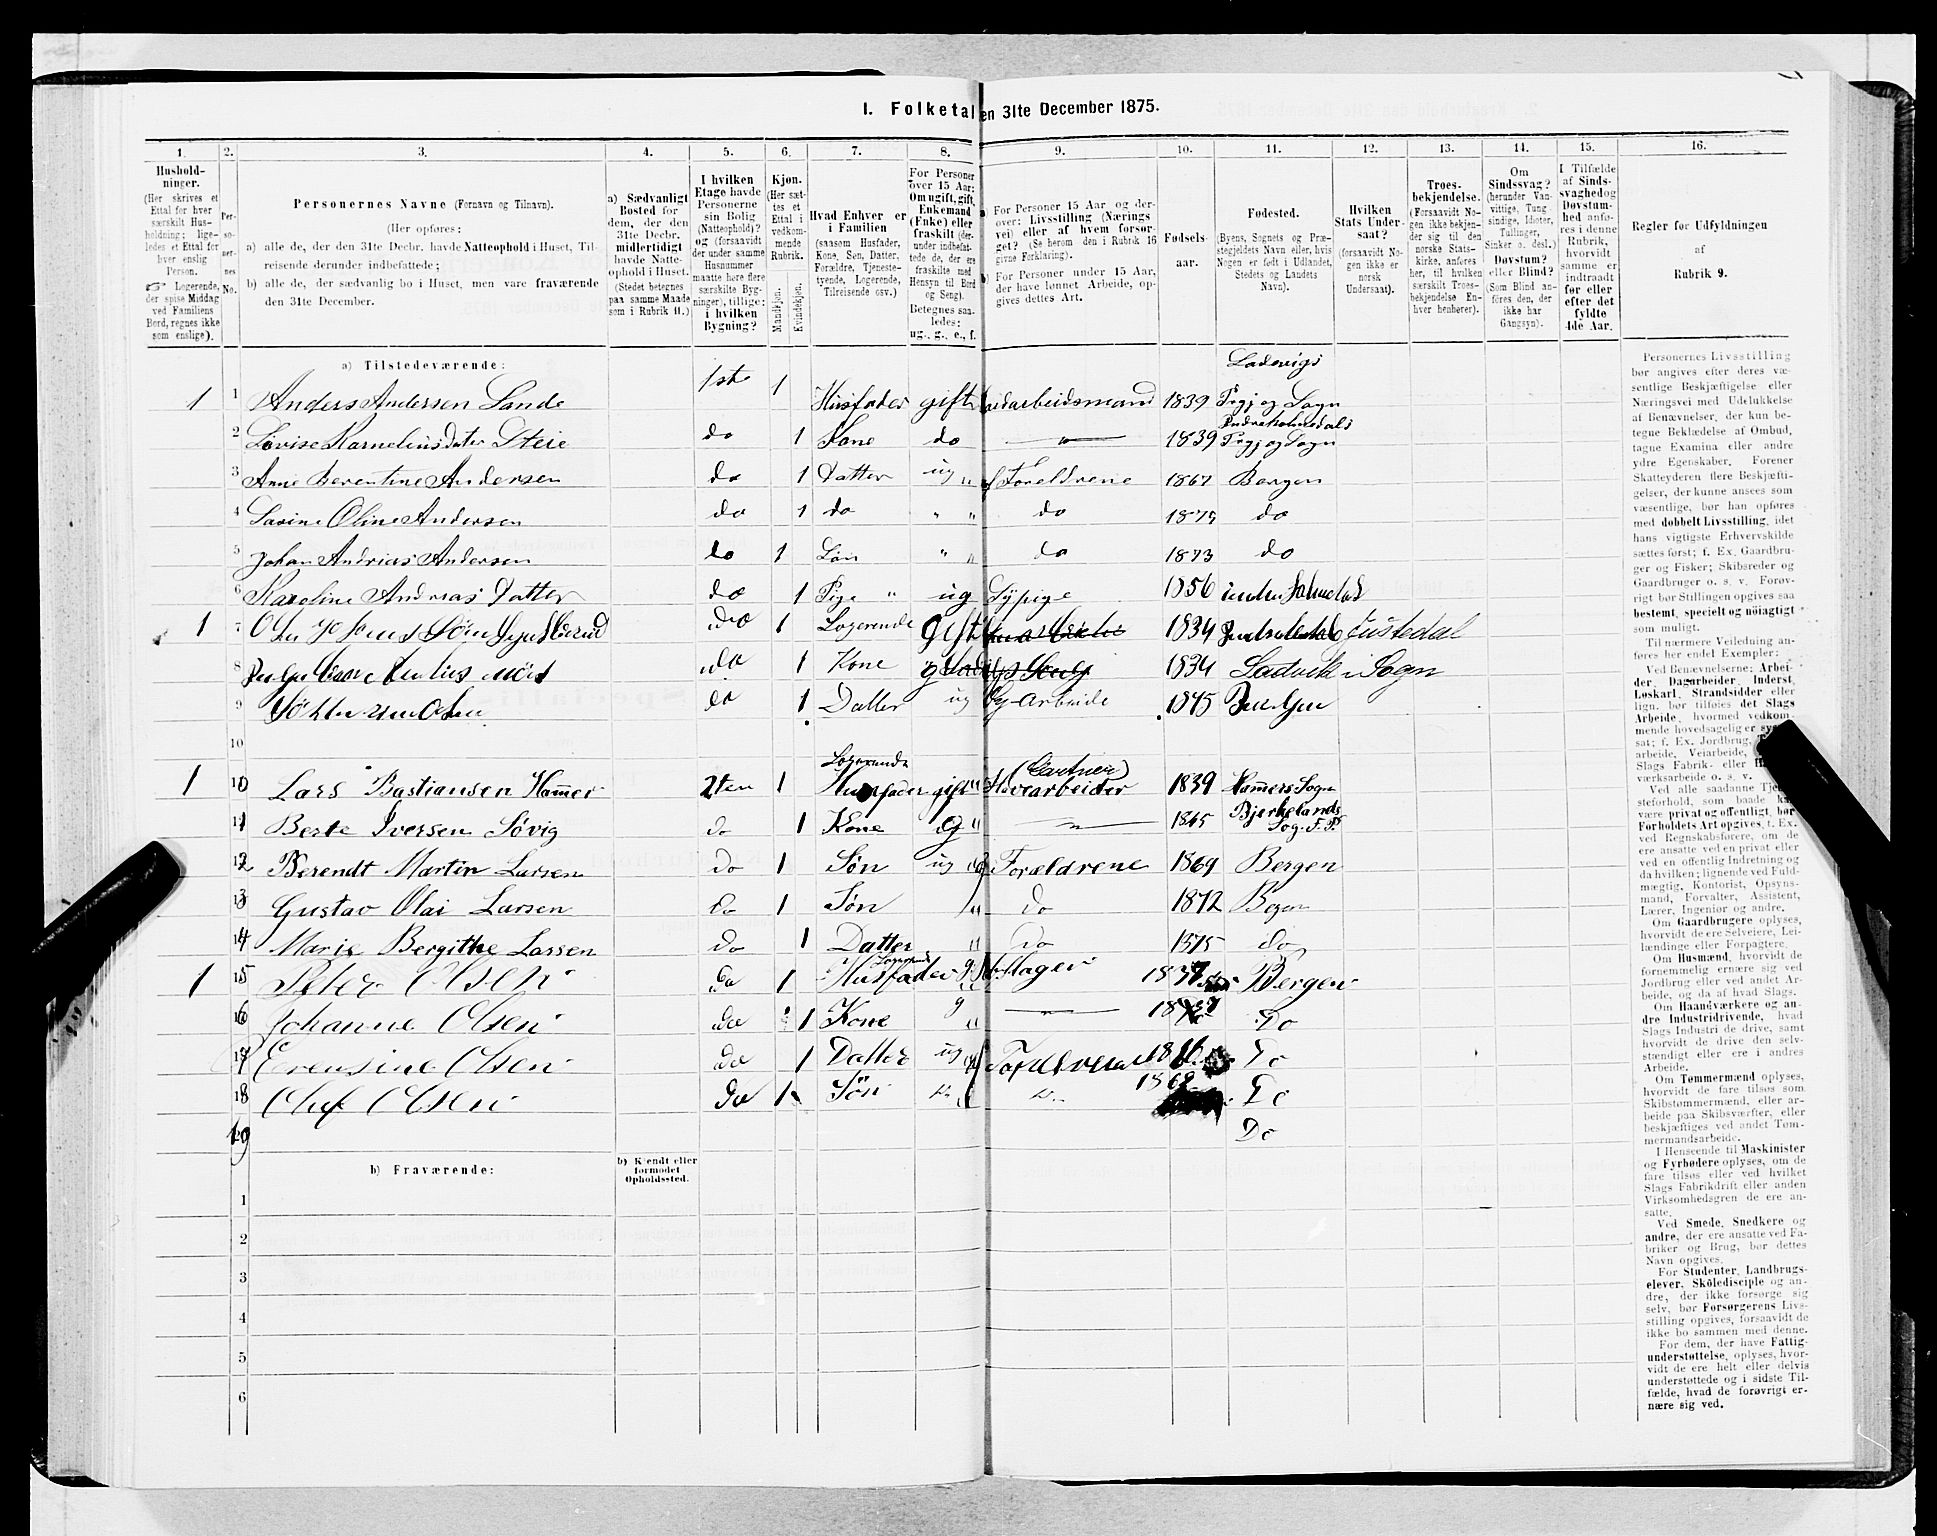 I. Folketal en 31te December 1875.
1. 2. 3. 4. 5. 6. 7. 8. 9. 10. 11. 12. 13. 14. 15. 16.
Hushold-
ninger.
(Her skrives et
Ettal for hver
særskilt Hus-
holdning; lige-
ledes et Ettal for
hver enslig
Person.
☞ Logerende,
der spise Middag
ved Familiens
Bord, regnes ikke
som enslige).
Per-
so-
ner-
nes
No.
Personernes Navne (Fornavn og Tilnavn).
(Her opføres:
a) alle de, der den 31te Decbr. havde Natteophold i Huset, Til-
reisende derunder indbefattede;
b) alle de, der sædvanlig bo i Huset, men vare fraværende
den 31te December.
a) Sædvanligt
Bosted for
dem, der den
31te Decbr.
midlertidigt
havde Natte-
ophold i Huset.
(Stedet betegnes
paa samme Maade
som i Rubrik 11.)
I hvilken
Etage havde
Personerne
sin Bolig
(Natteophold)?
og (forsaavidt
der under samme
Husnummer
maatte høre flere
særskilte Byg-
ninger), tillige:
i hvilken
Bygning?
Kjøn.
(Her sæt-
tes et
Ettal i
vedkom-
mende
Rubrik.
Mandkjøn.
Kvindekjøn.
Hvad Enhver er
i Familien
(saasom Husfader,
Kone, Søn, Datter,
Forældre, Tjeneste-
tyende, Logerende,
Tilreisende osv.)
For Personer
over 15 Aar:
Om ugift, gift,
Enkemand
(Enke) eller
fraskilt (der-
under indbefat-
tede de, der ere
fraskilte med
Hensyn til Bord
og Seng).
Betegnes saa-
ledes:
ug., g., e., f.
For Personer 15 Aar og der-
over: Livsstilling (Nærings
vei) eller af hvem forsør-
get? (Se herom den i Rubrik 16
givne Forklaring).
For Personer under 15 Aar,
der have lønnet Arbeide, op-
gives dettes Art.
Fødsels-
aar.
Fødested.
(Byens, Sognets og Præ-
stegjeldets Navn eller, hvis
Nogen er født i Udlandet,
Stedets og Landets
Navn).
Hvilken
Stats Under-
saat?
(forsaavidt No-
gen ikke er
norsk
Undersaat).
Troes-
bekjendelse.
(Forsaavidt No-
gen ikke bekjen-
der sig til den
norske Stats-
kirke, anføres
her, til hvilken
særskilt Troes-
bekjendelse En-
hver henhører).
Om
Sindssvag?
(herunder Van-
vittige, Tung
sindige, Idioter,
Tullinger,
Sinker o. desl.)
Døvstum?
eller Blind?
(Som Blind an-
føres den, der
ikke har
Gangsyn).
I Tilfælde
af Sinds-
svaghed og
Døvstum-
hed anfø-
res i denne
Rubrik,
hvorvidt
samme er
indtraadt
før eller
efter det
fyldte
4de Aar.
Regler for Udfyldningen
af
Rubrik 9.
a) Tilstedeværende:
1 1 Anders Andersen Sande 1ste 1 Husfader gift arbeidsmand 1839 Ladevigs Prgj og Sogn
2 Lovise Karnelius dater Steie do 1 Kone do 1839 Prgj og Sogn
3 Anne Berentine Andersen do 1 Datter ug Foreldrene 1867 Bergen
4 Oline Andersen do 1 do " " do 187 do
5 Johan Andrias Andersen do 1 Søn " " do 1873 do
6 Karoline Andrias Datter do 1 Pige " ug Sypige 1856
1 7 do 1 Logerende Gift 1834 Justedal
8 do 1 Kone g 1834 Ladvik i Sogn
9 do 1 Datter ug Arbeide 1875
10
1 10 Lars Bastiansen Hammer 2ten 1 Logerende Husfader gift (Gartner) arbeider 1839 Hamers Sogn
11 Berte Iversen Søvig do 1 Kone G 1845 Bjerkelands Sog. F. P.
12 Berendt Martin Larsen do 1 Søn ug Forældrene 1869 Bergen
13 Gustav Olai Larsen do 1 Søn do 1872 Begen
14 Marie Bergithe Larsen do 1 Datter do 1875 do
1 15 Peter Olsen do 1 Logerende Husfader g Bergen
16 Johanne Olsen do 1 Kone g Do
17 Olsen do 1 Datter ug Do
18 Oluf Olsen do 1 Søn 1869 Do
19 Do
b) Fraværende:
b) Kjendt eller
formodet
Opholdssted.
1
2
3
4
5
6
Personernes Livsstilling
bør angives efter deres væ-
sentlige Beskjæftigelse eller
Næringsvei med Udelukkelse
af Benævnelser, der kun be-
tegne Beklædelse af Ombud,
tagne Examina eller andre
ydre Egenskaber. Forener
Skatteyderen flere Beskjæfti-
gelser, der kunne ansees som
væsentlige, bør han opføres
med dobbelt Livsstilling, idet
hans vigtigste Erhvervskilde
sættes først; f. Ex. Gaardbru-
ger og Fisker; Skibsreder og
Gaardbruger o. s. v. Forøv-
rigt bør Stillingen opgives saa
bestemt, specielt og nøiagtigt
som muligt.
Til nærmere Veiledning an-
føres her endel Exempler:
Ved Benævnelserne: Arbei-
der, Dagarbeider, Inderst,
Løskarl, Strandsidder eller
lign. bør tilføies det Slags
Arbeide, hvormed vedkom-
mende hovedsagelig er
sat; f. Ex. Jordbrug,
arbeide, Veiarbeide,
Slags Fabrik- eller
værksarbeide o. s. v.
Ved alle saadanne
steforhold, som baade
være privat og offentligt, bør
Forholdets Art opgives, t. Ex.
ved Regnskabsførere, om de
ere ansatte ved en privat eller
ved en offentlig Indretning og
da hvilken; lignende ved Fuld-
mægtig, Kontorist, Opsyns-
mand, Forvalter, Assistent,
Lærer, Ingeniør og andre.
Om Gaardbrugere oplyses,
hvorvidt de ere Selveiere, Lei-
lændinge eller Forpagtere.
Om Husmænd, hvorvidt de
fornemmelig ernære sig ved
Jordbrug eller ved andet Ar-
beide, og da af hvad Slags.
Om Haandværkere og an-
dre Industridrivende, hvad
Slags Industri de drive, samt
hvorvidt de drive den selv-
stændigt eller ere i andres
Arbeide.
Om Tømmermænd oplyses,
hvorvidt de fare tilsøs som
Skibstømmermænd, eller ar-
beide paa Skibsværfter, eller
beskjæftiges ved andet Tøm-
mermandsarbeide.
I Henseende til Maskinister
og Fyrbødere oplyses, om de
fare tilsøs eller ved hvilket
Slags Fabrikdrift eller anden
Virksomhedsgren de ere an-
satte.
Ved Smede, Snedkere og
andre, der ere ansatte ved Fa-
briker og Brug, bør dettes
Navn opgives.
For Studenter, Landbrugs-
elever, Skoledisciple og an-
dre, der ikke forsørge sig
selv, bør Forsørgerens Livs-
stilling opgives, forsaavidt de
ikke bo sammen med denne.
For dem, der have Fattig-
understøttelse, oplyses, hvor-
vidt de ere helt eller delvis
understøttede og i sidste Til-
fælde, hvad de forøvrigt er-
nære sig ved.